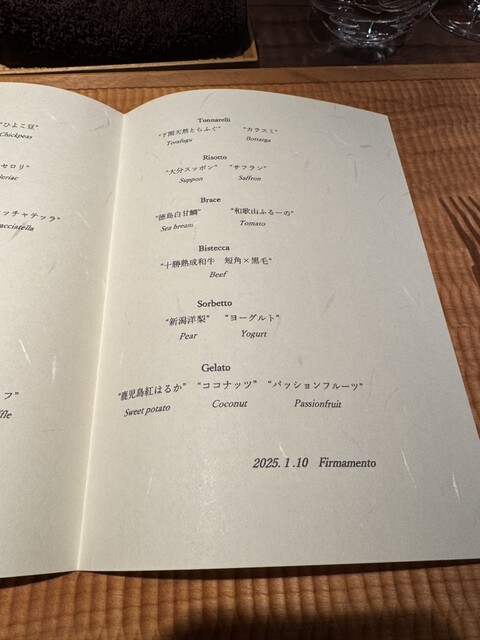 ひよこ豆"
Chickpeas
セロリ
ッチャテッラ"
フ"
Tonnarelli
"下関天然とらふぐ" "カラスミ"
Torafugu Bottarga
Risotto
"大分スッポン" "サフラン"
Suppon Saffron
Brace
"徳島白甘鯛" "和歌山ふるーの"
Sea bream Tomato
Bistecca
"十勝熟成和牛 短角×黒毛"
Beef
Sorbetto
"新潟洋梨" "ヨーグルト"
Pear Yogurt
Gelato
"鹿児島紅はるか" "ココナッツ" "パッションフルーツ"
Sweet potato Coconut Passionfruit
2025. 1 .10 Firmamento